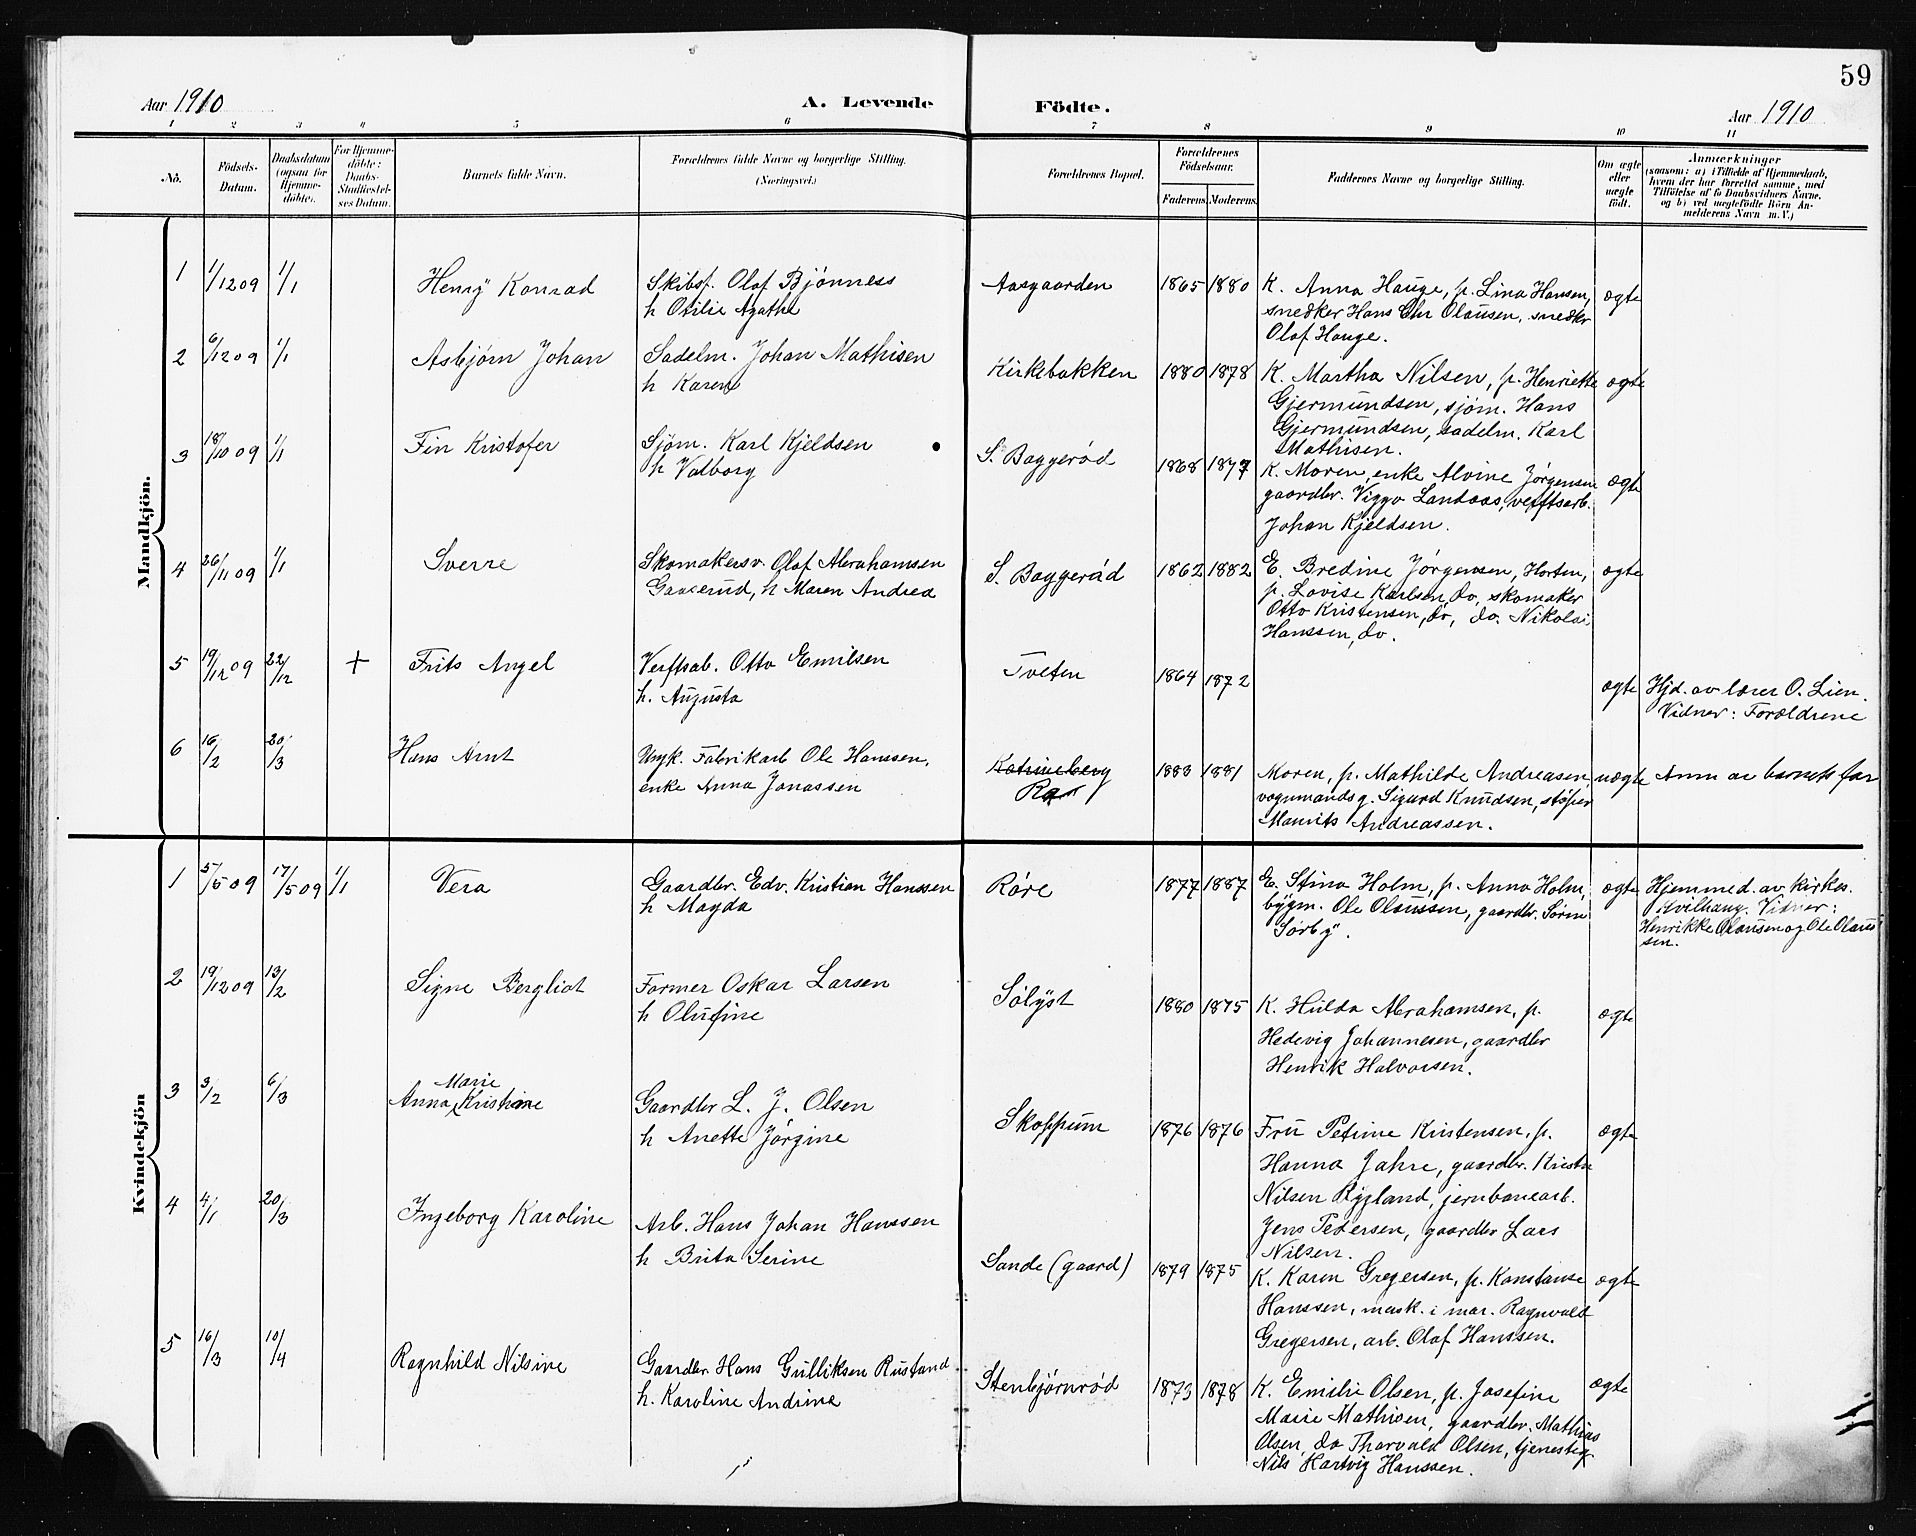 59
Aar 1910
A. Levende Födte.
Aar 1910
1 2 3 4 5 6 7 8 9 10 11
No.
Födsels-Datum.
Daabsdatum (ogsaa for Hjemme-döbte).
For Hjemme-döbte: Daabs-Stadfæstel-ses Datum.
Barnets fulde Navn.
Forældrenes fulde Navne og borgerlige Stilling. (Næringsvei.)
Forældrenes Bopæl.
Forældrenes Födselsaar.
Faderens. Moderens.
Faddernes Navne og borgerlige Stilling.
Om ægte eller uægte födt.
Anmærkninger
(saasom: a) i Tilfælde af Hjemmedaab,
hvem der har forrettet samme, med
Tilföielse af to Daabsvidners Navne,
og b) ved uægtefödte Börn An-
melderens Navn m. V.)
Mandkjön.
1 1/12 09 1/1 Henry Konrad Skibsf. Olaf Bjønness Aasgaarden 1865 1880 K. Anna Hauge, p. Lina Hansen, ægte
h Otilie Agathe snedker Hans Chr Olausen, snedker
Olaf Hauge.
2 6/12 09 1/1 Asbjørn Johan Sadelm. Johan Mathisen Kirkebakken 1880 1878 K. Martha Nilsen, p. Henriette ægte
h Karen Gjermundsen, sjøm. Hans
Gjermundsen, sadelm. Karl
Mathisen.
3 18/10 09 1/1 Fin Kristofer Sjøm. Karl Kjeldsen S. Baggerød 1868 1877 K. Moren, enke Alvine Jørgensen ægte
h Valborg gaardbr. Viggo Landaas, verftsarb.
Johan Kjeldsen.
4 26/11 09 1/1 Sverre Skomakersv. Olaf Abrahamsen S. Baggerød 1862 1882 E. Bredine Jørgensen, Horten, ægte
Gaaserud, h Maren Andrea p. Lovise Karlsen, do, skomaker
Otto Kristensen, do, do. Nikolai
Hanssen, do.
5 19/12 09 22/12 + Frits Angel Verftsab. Otto Emilsen Tveten 1864 1872 ægte Hjd. av lærer O. Lien.
h. Augusta Vidner: Forældrene
6 16/2 20/3 Hans Arnt Ungk. Fabrikarb Ole Hanssen, Katrineberg 1883 1881 Moren, p. Mathilde Andreasen, uægte Anm av barnets far
enke Anna Jonassen vognmandsg. Sigurd Knudsen, støper
Maurits Andreassen.
Kvindekjön
1 5/5 09 17/5 09 1/1 Vera Gaardbr. Edv. Kristian Hanssen Røre 1877 1887 E. Stina Holm, p. Anna Holm, ægte Hjemmed. av kirkes.
h Magda bygm. Ole Olaussen, gaardbr. Søren Kvilhaug. Vidner:
Sørby. Henrikke Olausen og Ole Olaus-
sen.
2 19/12 09 13/2 Signe Bergliot Former Oskar Larsen Sølyst 1880 1875 K. Hulda Abrahamsen, p. ægte
h Olufine Hedevig Johannesen, gaardbr
Henrik Halvorsen.
3 3/2 6/3 Anna Marie Kristiane Gaardbr L. J. Olsen Skoppum 1876 1876 Fru Petrine Kristensen, p. ægte
h Anette Jørgine Hanna Jahre, gaardbr. Kristn
Nilsen Rygland, jernbanearb.
Jens Pedersen, gaardbr Lars
Nilsen.
4 4/1 20/3 Ingeborg Karoline Arb. Hans Johan Hanssen Sande (gaard) 1879 1875 K. Karen Gregersen, p. Konstanse ægte
h Brita Serine Hanssen, mask. i mar. Ragnvald
Gregersen, arb. Olaf Hanssen.
5 16/3 10/4 Ragnhild Nilsine Gaardbr. Hans Gulliksen Rustand Stenbjørnrød 1873 1878 K. Emilie Olsen, p. Josefine ægte
h. Karoline Andrine Marie Mathisen, gaardbr. Mathias
Olsen, do Thorvald Olsen, tjenesteg.
Nils Hartvig Hanssen.